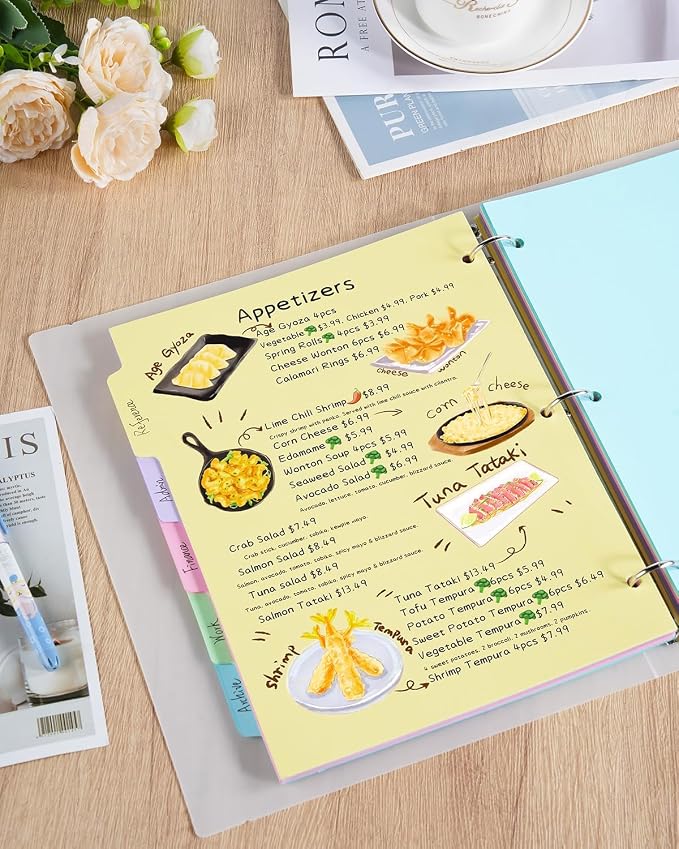 ROM
A FREE
Recherche
BONECHINA
PUR
GREEN PLAN
Appetizers
Age Gyoza
Age Gyoza 4pcs
Vegetable $3.99, Chicken $4.99, Pork $4.99
Spring Rolls 4pcs $3.99
Cheese Wonton 6pcs $6.99
Calamari Rings $6.99
Cheese Wonton
Reference
Lime Chili Shrimp $8.99
Crispy shrimp with panko. Served with lime chili sauce with cilantro.
Corn Cheese $6.99
Edamame $5.99
Wonton Soup 4pcs $5.99
Seaweed Salad $4.99
Avocado Salad $6.99
Avocado, lettuce, tomato, cucumber, blizzard sauce.
corn cheese
Tuna Tataki
Crab Salad $7.49
Crab stick, cucumber, tobika, kewpie mayo.
Salmon Salad $8.49
Salmon, avocado, tomato, tobika, spicy mayo & blizzard sauce.
Tuna salad $8.49
Tuna, avocado, tomato, tobika, spicy mayo & blizzard sauce.
Salmon Tataki $13.49
Tuna Tataki $13.49
Tofu Tempura 6pcs $5.99
Potato Tempura 6pcs $4.99
Sweet Potato Tempura 6pcs $6.49
Vegetable Tempura $7.99
4 sweet potatoes, 2 broccoli, 2 mushrooms, 2 pumpkins
Shrimp Tempura 4pcs $7.99
shrimp Tempura
Finance
Work
Archive
IS
ALYPTUS